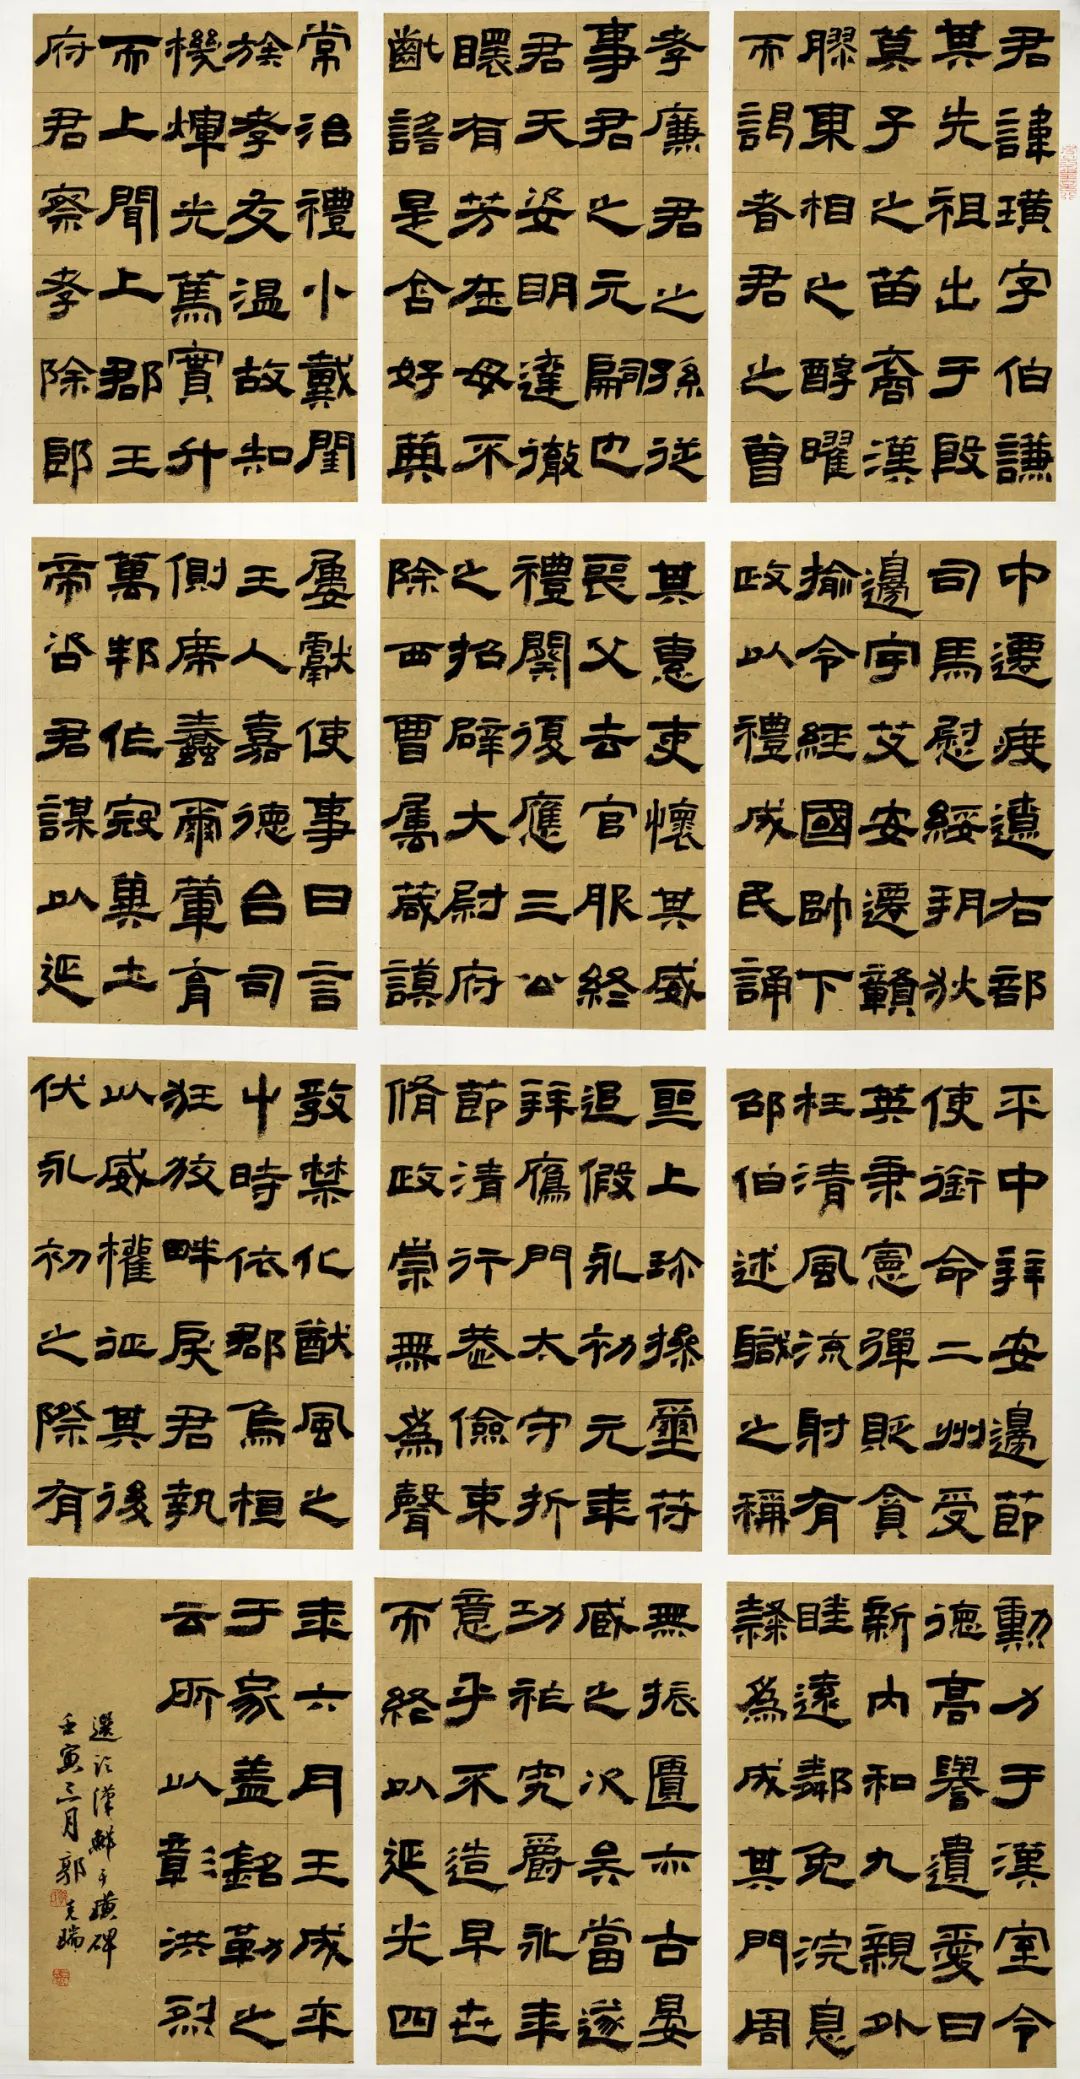 君諱璜字伯謙
其先祖出于殷
箕子之苗裔漢
膠東相之醇曜
而謁者君之曾
孝廉君之孫從
事君之元嗣也
君天姿明達徹
瞏有芳在母不
齔諮是含好典
常治禮小戴閨
族孝友温故知
機煇光篤實升
而上聞上郡王
府君察孝除郎
中遷度遼右部
司馬慰綏朔狄
邊宇艾安遷贛
揄令經國帥下
政以禮成民誦
其惠吏懷其威
喪父去官服終
禮闋復應三公
之招辟大尉府
除西曹屬蔵謨
屢獻使事曰言
王人嘉德台司
側席蠢爾葷育
萬邦作寇冀土
帝咨君謀以延
平中拜安邊節
使銜命二州受
英秉憲彈貶貪
枉清風流射有
邵伯述職之稱
聖上珍操璽符
追假永初元年
拜鴈門太守折
節清行恭儉束
脩政崇無爲聲
教禁化猷風之
中時依郡烏桓
狂狡畔戾君執
以威權征其後
伏永初之際有
勳力于漢室令
德高譽遺愛日
新内和九親外
睦遠鄰免浣息
隸爲成其門周
無振匱亦古晏
臧之次矣當遂
功祚究爵永年
意乎不造早世
而終以延光四
年六月壬戌卒
于家蓋銘勒之
云所以彰洪烈
選臨漢鮮于璜碑
壬寅三月郭克瑞